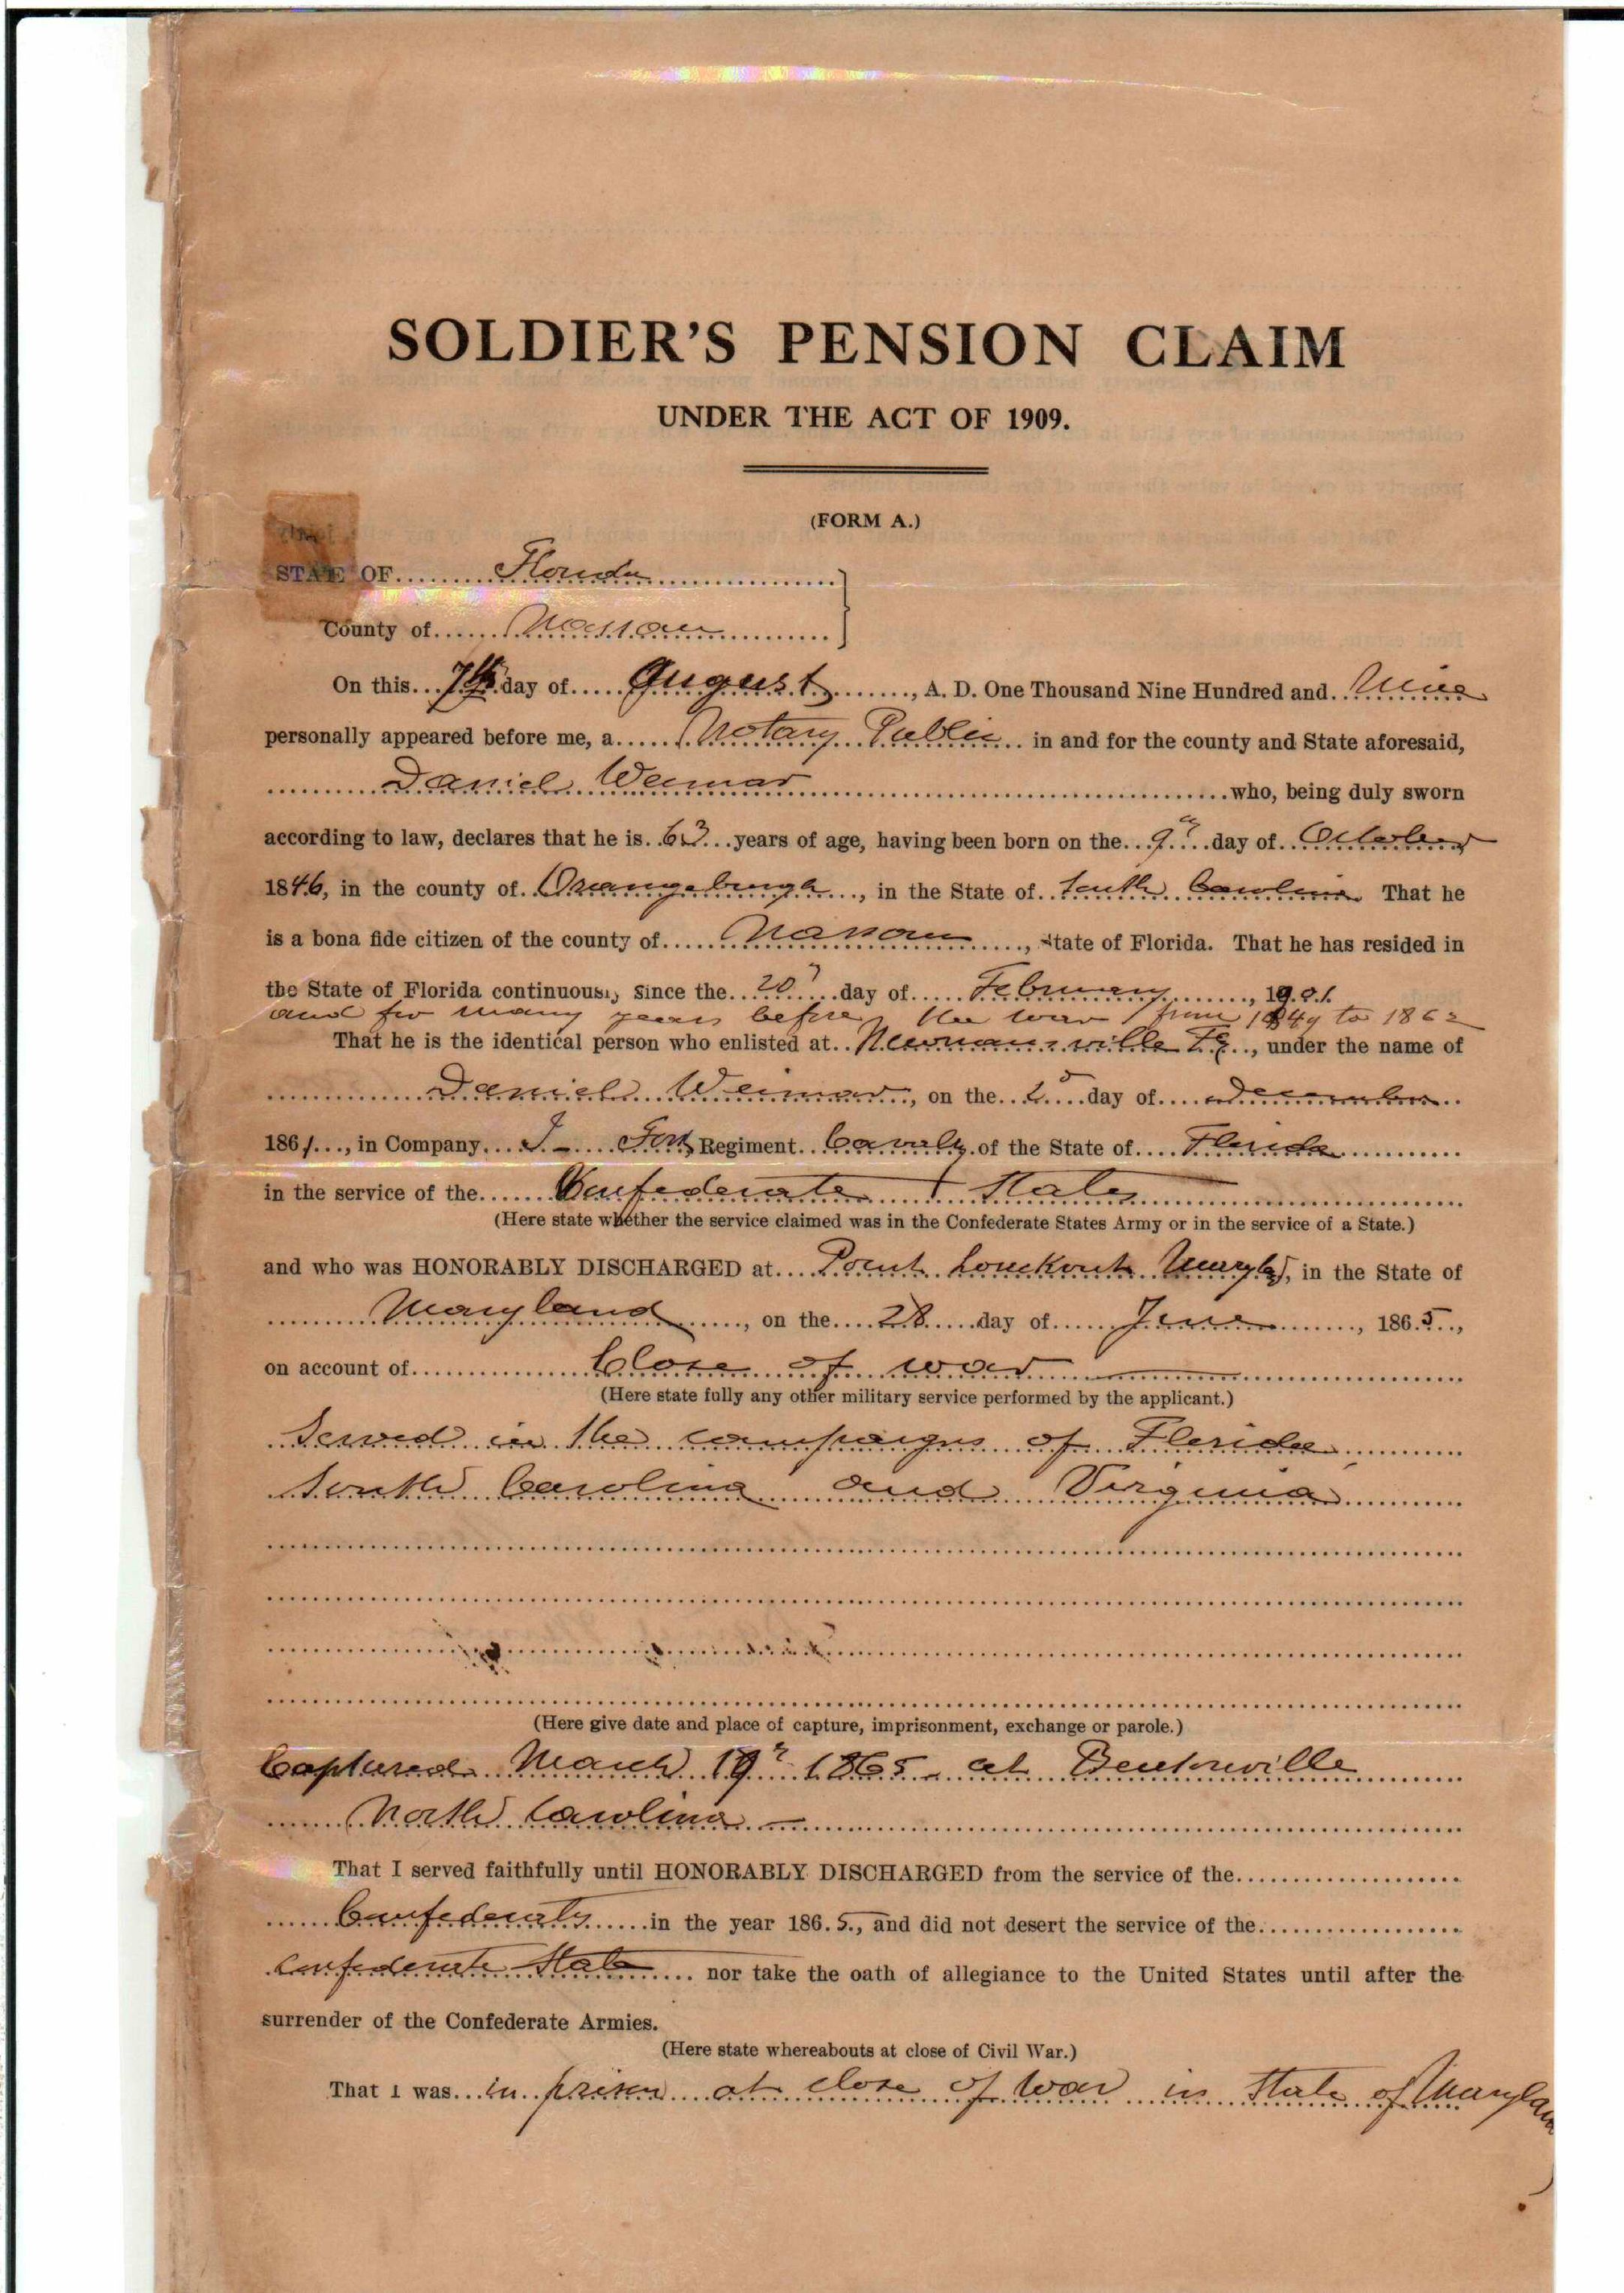 SOLDIER'S PENSION CLAIM
UNDER THE ACT OF 1909.
(FORM A.)
STATE OF Florida
County of Nassau
On this 7th day of August, A. D. One Thousand Nine Hundred and Nine
personally appeared before me, a Notary Public in and for the county and State aforesaid,
Daniel Weimar who, being duly sworn
according to law, declares that he is 63 years of age, having been born on the 9th day of October
1846, in the county of Orangeburgh, in the State of South Carolina That he
is a bona fide citizen of the county of Nassau, State of Florida. That he has resided in
the State of Florida continuously since the 20th day of February, 1901.
and for many years before the war from 1849 to 1862
That he is the identical person who enlisted at Newnansville Fla, under the name of
Daniel Weimar, on the day of December
1861, in Company Regiment Cavalry of the State of Florida
in the service of the Confederate States
(Here state whether the service claimed was in the Confederate States Army or in the service of a State.)
and who was HONORABLY DISCHARGED at Point Lookout Maryld, in the State of
Maryland, on the 28 day of June, 1865,
on account of Close of war
(Here state fully any other military service performed by the applicant.)
Served in the campaigns of Florida
South Carolina and Virginia
(Here give date and place of capture, imprisonment, exchange or parole.)
Captured March 19th 1865 at Bentonville
North Carolina
That I served faithfully until HONORABLY DISCHARGED from the service of the
Confederate in the year 1865, and did not desert the service of the
Confederate State nor take the oath of allegiance to the United States until after the
surrender of the Confederate Armies.
(Here state whereabouts at close of Civil War.)
That I was in prison at close of war in State of Maryland